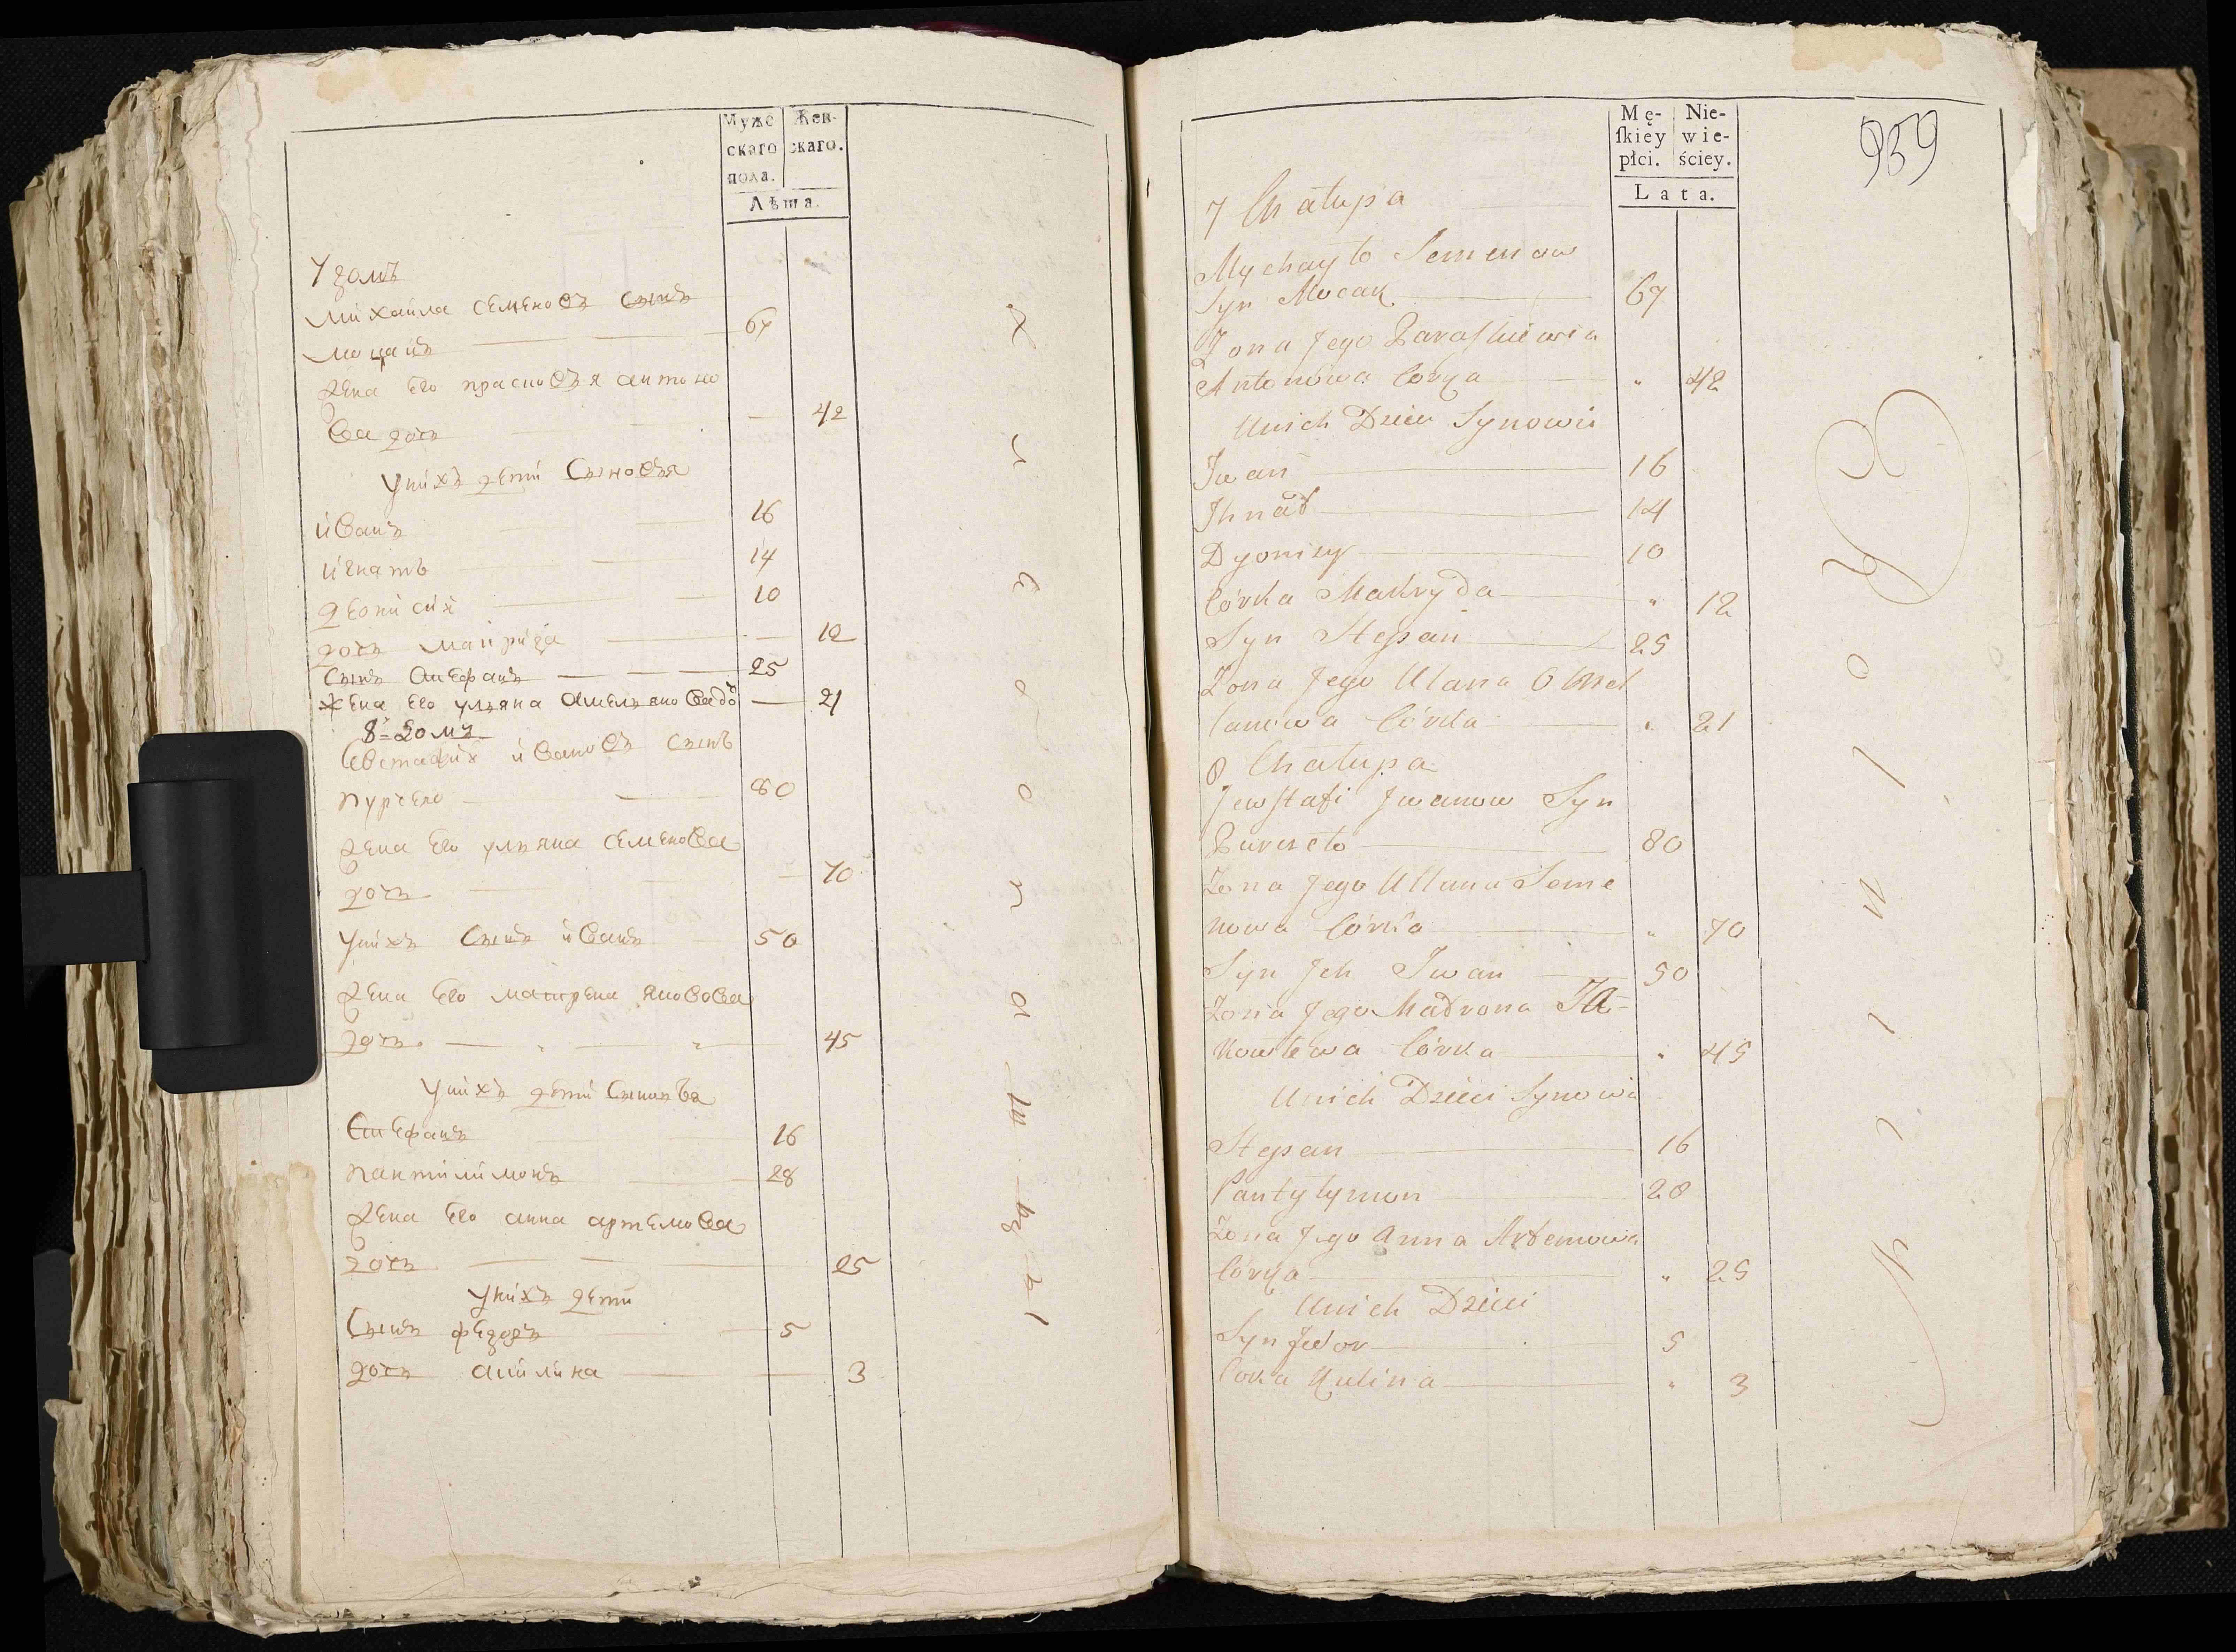 Муже Жен-
скаго скаго.
пола.
Лѣта.
7 домъ
михайла семеновъ сынъ
моцакъ 67
жена его прасковья антоно
ва дочь 42
у нихъ дети сыновья
иванъ 16
игнатъ 14
деонисий 10
дочь макрида 12
сынъ стефанъ 25
жена его ульяна омельянова до 21
8й домъ
евстафий ивановъ сынъ
пурсело 80
жена его ульяна семенова
дочь 70
у нихъ сынъ иванъ 50
жена его матрена яковова
дочь 45
у нихъ дети сыновья
стефанъ 16
пантилимонъ 28
жена его анна артемова
дочь 25
у нихъ дети
сынъ федоръ 5
дочь акилина 3
Mę- Nie-
ſkiey wie-
płci. ściey.
Lata.
959
7 Chałupa
Mychayło Semenow
Syn Mocak 67
Żona Jego Paraſkiewia
Antonowa Córka " 42
Unich Dzieci Synowie
Iwan 16
Ihnad 14
Dyonizy 10
Córka Makryda " 12
Syn Stepan 25
Żona Jego Ulana Omel
lanowa Córka " 21
8 Chałupa
Jewſtafi Jwanow Syn
80
Żona Jego Ullana Seme
nowa Córka " 70
Syn Jch Iwan 50
Żona Jego Madrona Ja-
kowlewa Córka " 45
Unich Dzieci Synowie
Stepan 16
Pantyłymon 28
Żona Jego Anna Artemowa
Córka " 25
Unich Dzieci
Syn Fedor 5
Córka Kulina " 3